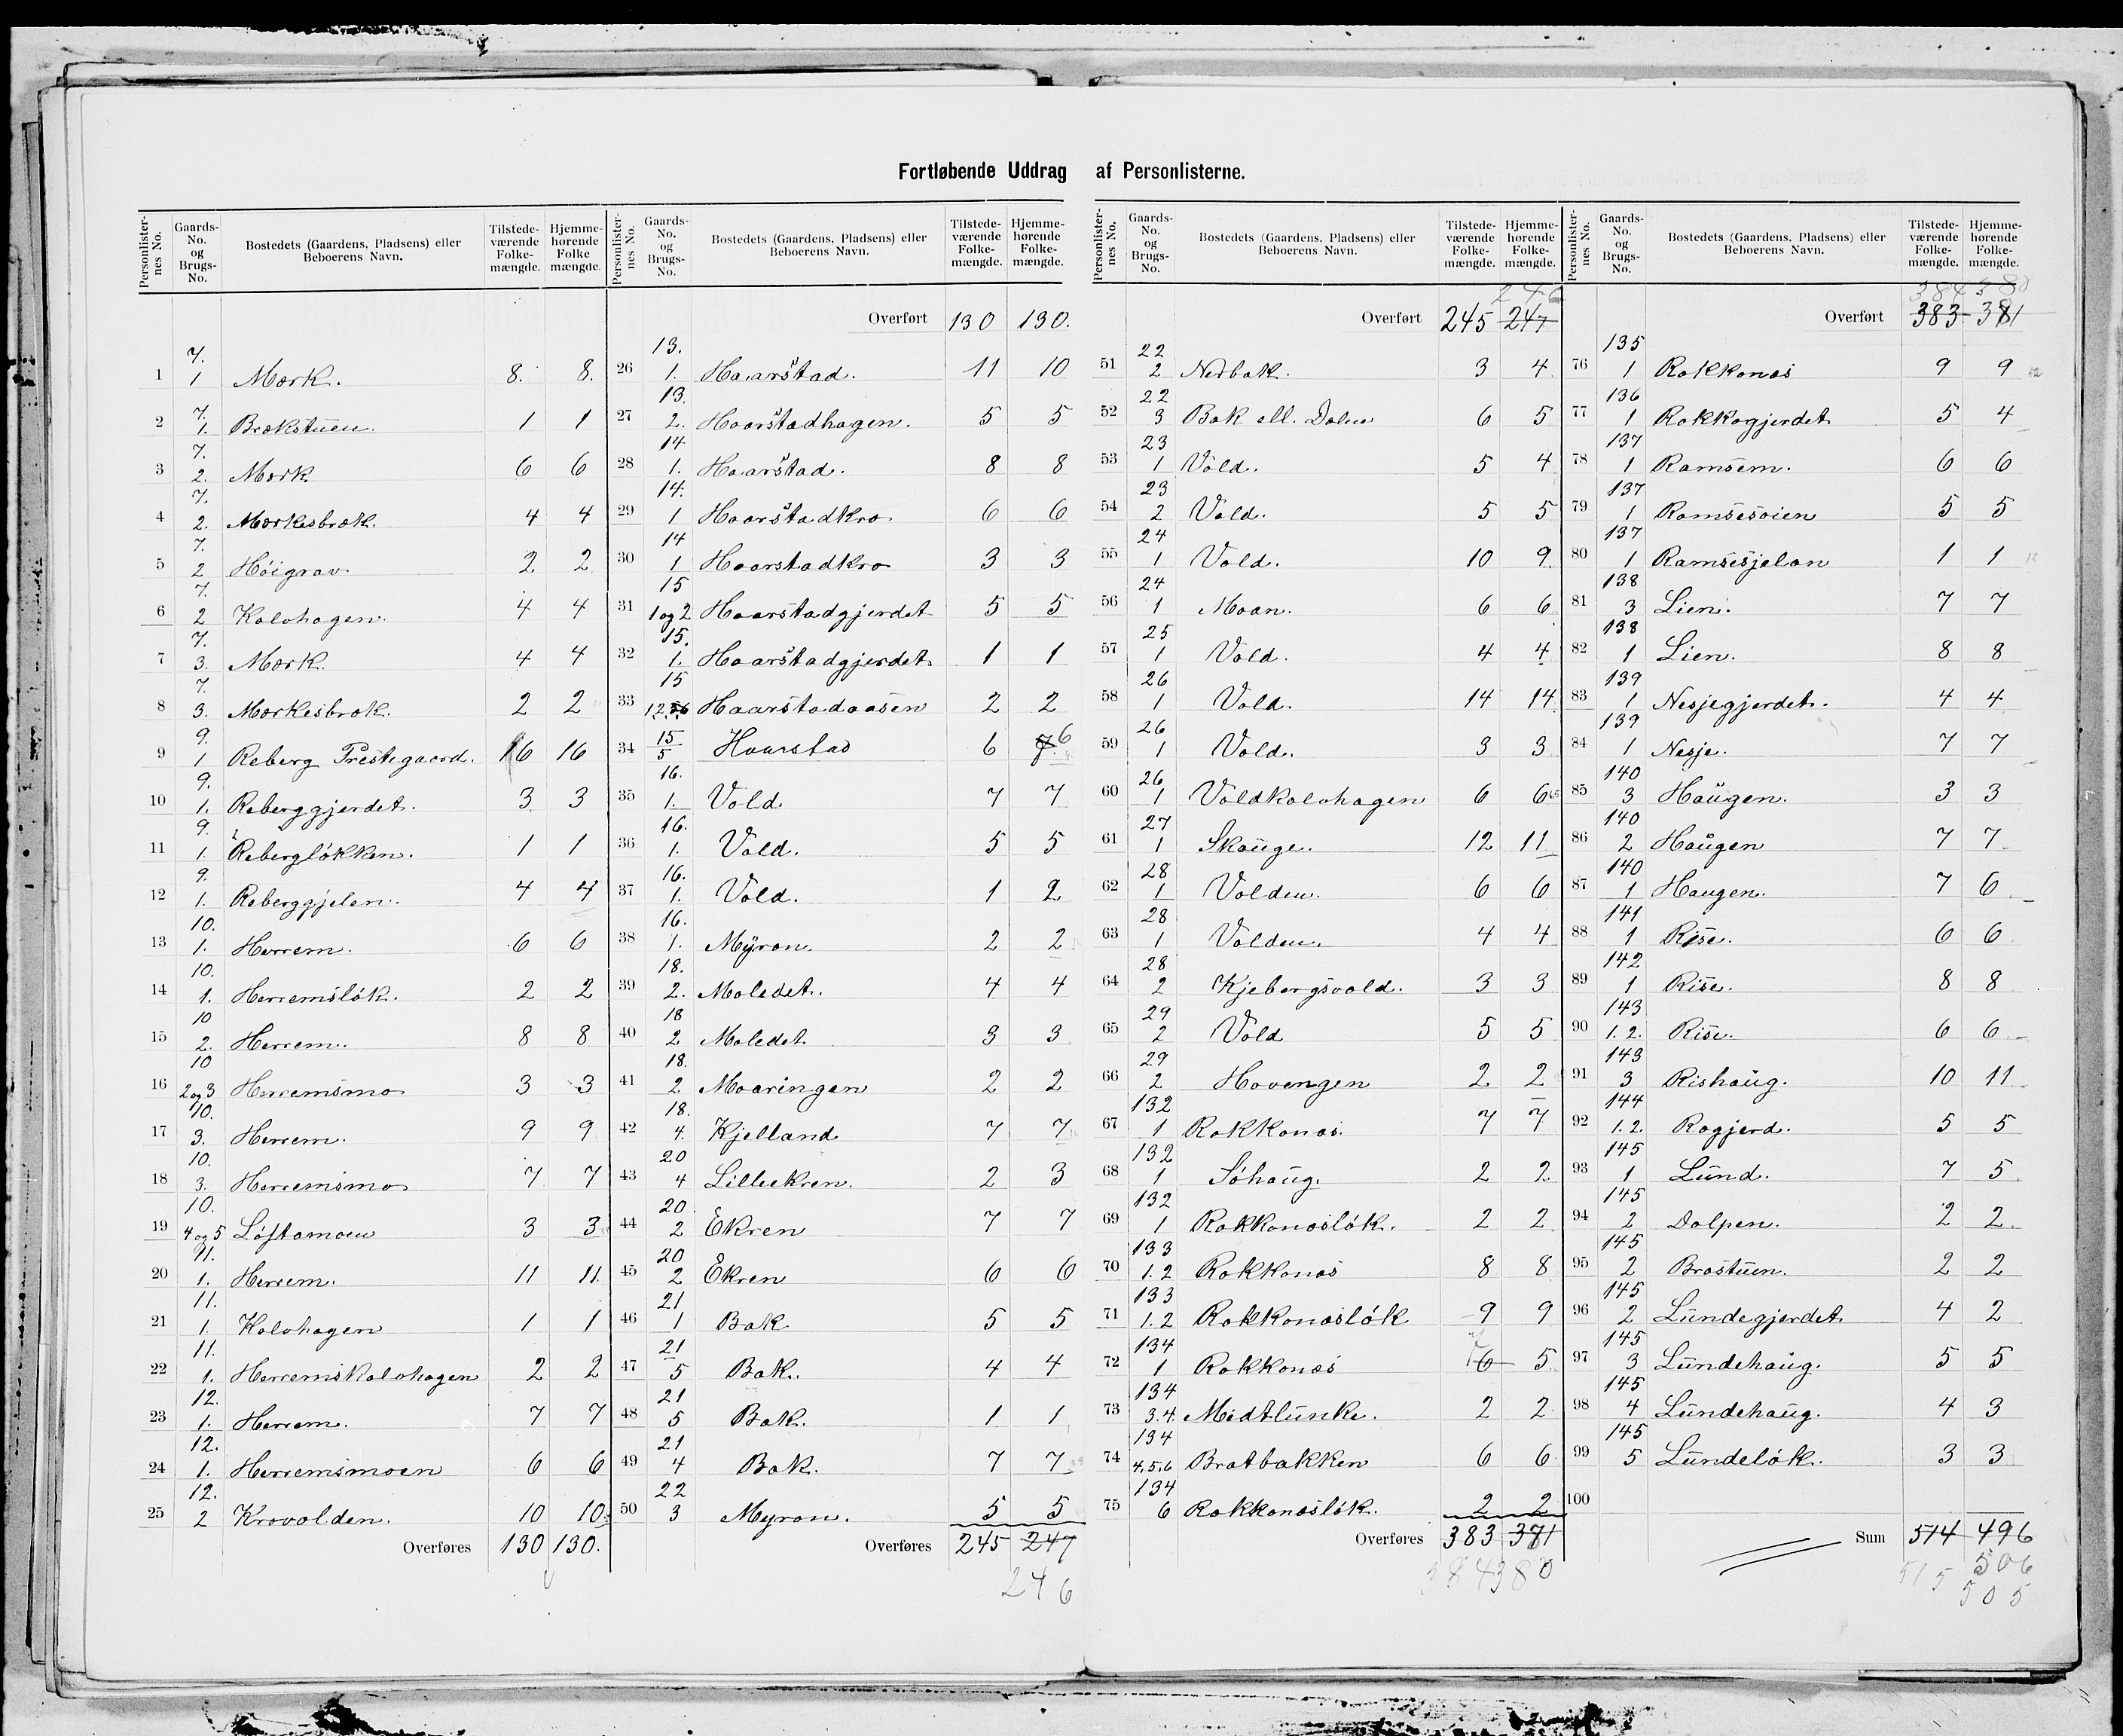 Fortløbende Uddrag af Personlisterne.
Personlister-nes No. Gaards-No. og Brugs-No. Bostedets (Gaardens, Pladsens) eller Beboerens Navn. Tilstede-værende Folke-mængde. Hjemme-hørende Folke mængde.
7. 1 1 Mærk. 8. 8.
7. 2 1. Brækstuen. 1 1
7. 3 2. Mærk 6 6
7. 4 2. Mærkesbræk. 4 4
7. 5 2 Höigrav 2 2
7. 6 2 Kalvhagen. 4 4
7. 7 3. Mærk. 4 4
7. 8 3. Mærkesbræk. 2 2
9. 9 1 Reberg Prestegaard. 16 16
9. 10 1. Reberggjerdet. 3 3
9. 11 1. Reberglökken. 1 1
9. 12 1. Reberggjelen. 4 4
10. 13 1. Herrem. 6 6
10. 14 1. Herremslök. 2 2
10 15 2. Herrem. 8 8
10 16 2 og 3 Herremsmo 3 3
10. 17 3. Herrem. 9 9
10. 18 3. Herremsmo 7 7
10. 19 4 og 5 Löftamoen 3 3
11. 20 1. Herrem. 11 11.
11. 21 1. Kalvhagen 1 1
11. 22 1. Herremskalvhagen 2 2
12. 23 1. Herrem. 7 7
12. 24 1. Herremsmoen 6 6
12. 25 2 Krovolden. 10 10
Overføres 130 130.
Personlister-nes No. Gaards-No. og Brugs-No. Bostedets (Gaardens, Pladsens) eller Beboerens Navn. Tilstede-værende Folke-mængde. Hjemme-hørende Folke-mængde.
Overført 130 130.
13. 26 1. Haarstad. 11 10
13. 27 2. Haarstadhagen. 5 5
14 28 1. Haarstad. 8 8
14. 29 1 Haarstadkro 6 6
14 30 1 Haarstadkro 3 3
15 31 1 og 2 Haarstadgjerdet 5 5
15. 32 1. Haarstadgjerdet 1 1
15 33 Haarstadaasen 2 2
15 34 5 Haarstad 6 7. 6
16. 35 1. Vold. 7 7
16. 36 1. Vold. 5 5
16. 37 1. Vold. 1 2
16. 38 1. Myran. 2 2
18. 39 2. Moledet. 4 4
18 40 2 Moledet. 3 3
18. 41 2 Moaringen 2 2
18. 42 4. Kjelland 7 7
20 43 4 Lilleekren. 2 3
20 44 2 Ekren 7 7
20 45 2 Ekren 6 6
21 46 1 Bak 5 5
21 47 5 Bak. 4 4
21 48 5 Bak. 1 1
21 49 4 Bak. 7 7
22 50 3 Myran. 5 5
Overføres 245 247
246
Personlister-nes No. Gaards-No. og Brugs-No. Bostedets (Gaardens, Pladsens) eller Beboerens Navn. Tilstede-værende Folke-mængde. Hjemme-hørende Folke-mængde.
246
Overført 245 247
22 51 2 Nedbak. 3 4
22 52 3 Bak ell. Dalen 6 5
23 53 1 Vold. 5 4
23 54 2 Vold. 5 5
24 55 1 Vold. 10 9
24 56 1 Moan. 6 6
25 57 1 Vold. 4 4
26 58 1 Vold. 14 14
26 59 1 Vold. 3 3
26 60 1 Voldkalvhagen 6 6
27 61 1 Skauge. 12 11
28 62 1 Volden. 6 6
28 63 1 Volden. 4 4
28 64 2 Kjebergsvold. 3 3
29 65 2 Vold 5 5
29 66 2 Hovengen 2 2
132 67 1 Rokkones. 7 7
132 68 1 Söhaug. 2 2
132 69 1 Rokkoneslök. 2 2
133 70 1. 2 Rokkones 8 8
133 71 1. 2 Rokkoneslök 9 9
134 72 1 Rokkones 7 6 5
134 73 3. 4. Midtlunke. 2 2
134 74 4. 5. 6 Bratbakken 6 6
134 75 6 Rokkoneslök. 2 2
Overføres 383 371
384 380
Personlister-nes No. Gaards-No. og Brugs-No. Bostedets (Gaardens, Pladsens) eller Beboerens Navn. Tilstede-værende Folke-mængde. Hjemme-hørende Folke-mængde.
384 380
Overført 383 371
135 76 1 Rokkones 9 9
136 77 1 Rokkogjerdet 5 4
137 78 1 Ramsem. 6 6
137 79 1 Ramsesöien 5 5
137 80 1 Ramsesjelen 1 1
138 81 3 Lien. 7 7
138 82 1 Lien. 8 8
139 83 1 Nesjegjerdet. 4 4
139 84 1 Nesje. 7 7
140 85 3 Haugen. 3 3
140 86 2 Haugen 7 7
140 87 1 Haugen. 7 6
141 88 1 Rise. 6 6
142 89 1 Rise. 8 8
143 90 1. 2. Rise. 6 6
143 91 3 Rishaug. 10 11
144 92 1. 2. Rogjerd. 5 5
145 93 1 Lund. 7 5
145 94 2 Dalpen. 2 2
145 95 2 Brastuen. 2 2
145 96 2 Lundegjerdet 4 2
145 97 3 Lundehaug. 5 5
145 98 4 Lundehaug. 4 3
145 99 5 Lundelök. 3 3
100
Sum 514 496
515 506
505